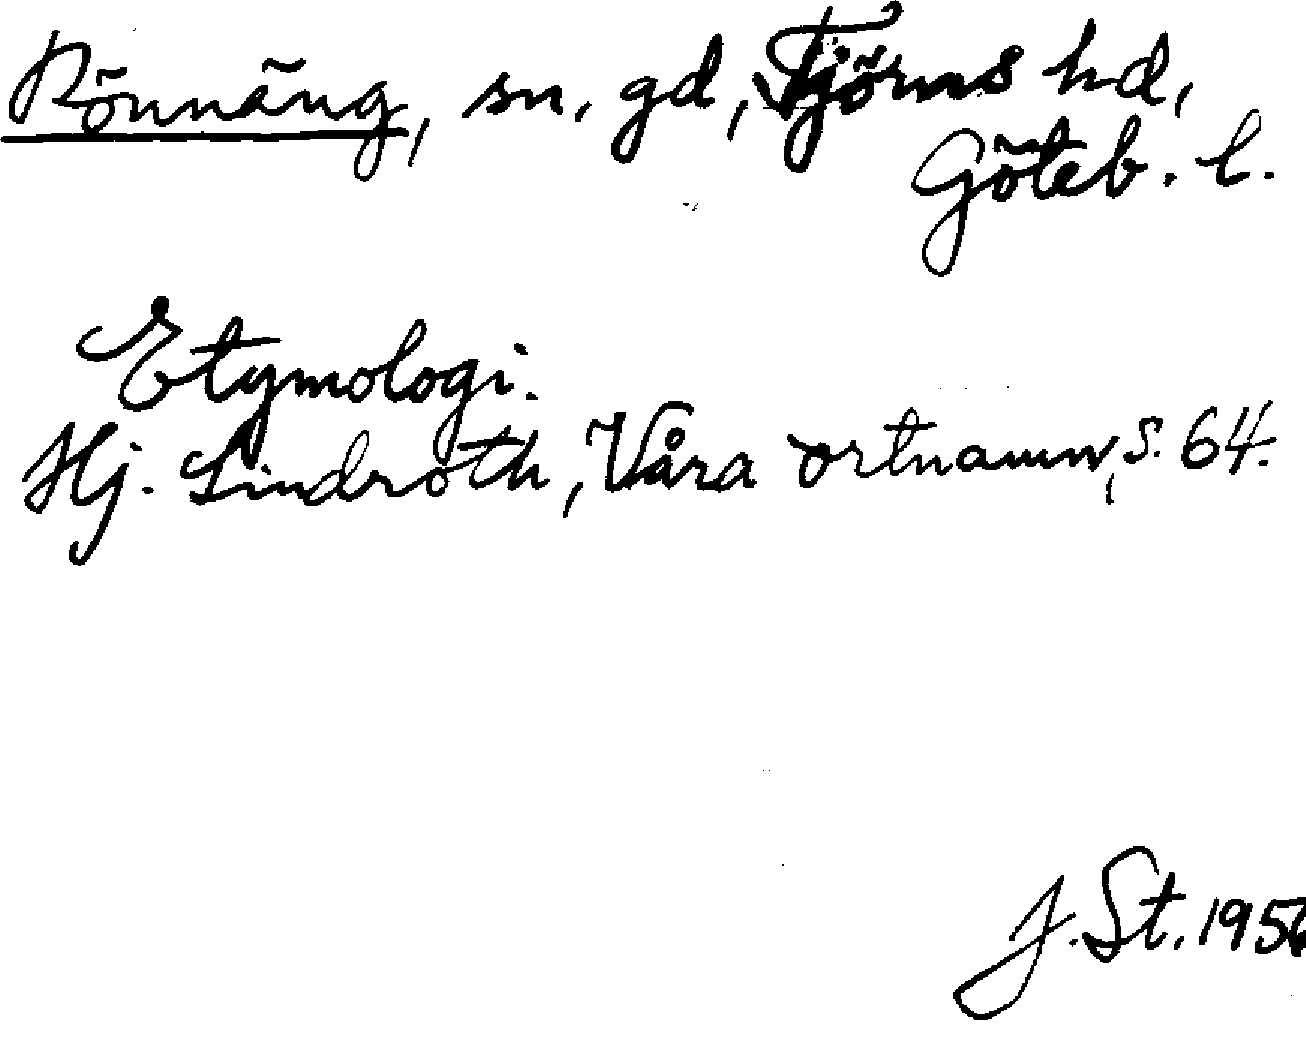 Rönnäng, sn. gd, Tjörns hd,
Göteb. l.
Etymologi.
Hj. Lindroth, Våra ortnamn, s. 64.
J. St. 1956